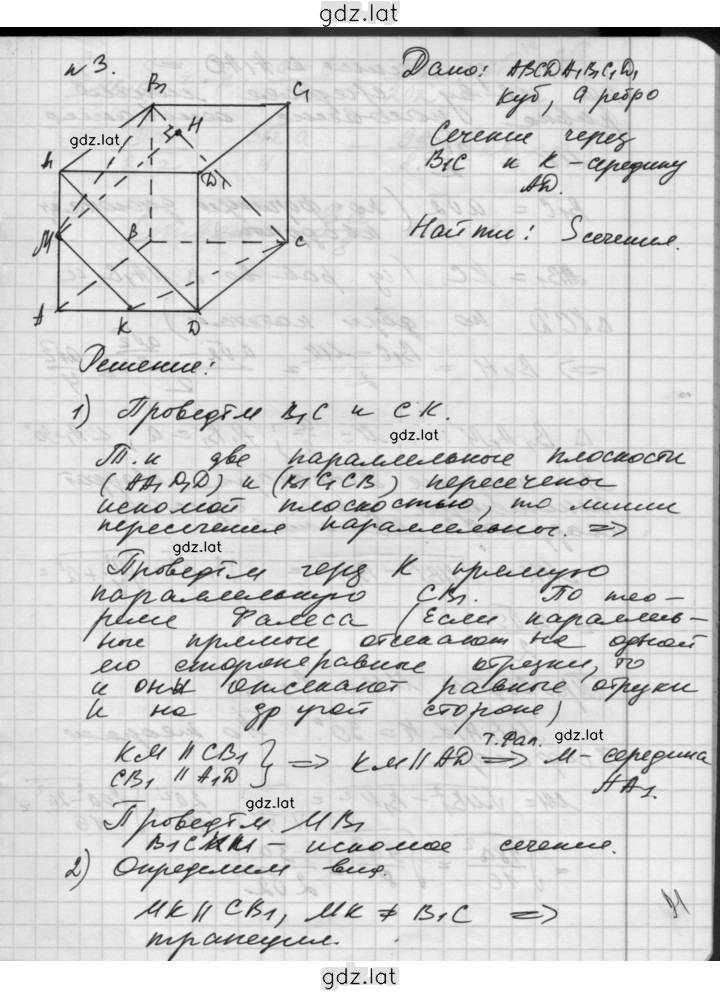 gdz.lat
н 3.
Дано: ABCDA₁B₁C₁D₁
куб, a ребро
Сечение через
B₁C и K – середину
AD.
Найти: Sсечения.
B₁
C₁
gdz.lat
H
A₁
D₁
M
B
C
A
K
D
Решение:
1) Проведём B₁C и CK.
gdz.lat
Т.к две параллельные плоскости
(AA₁D₁D) и (B₁C₁CB) пересечены
искомой плоскостью, то линии
пересечения параллельны. =>
gdz.lat
Проведём через K прямую
параллельную CB₁. По тео-
реме Фалеса (Если параллель-
ные прямые отсекают на одной
его стороне равные отрезки, то
и они отсекают равные отрезки
и на другой стороне)
KM || CB₁
CB₁ || A₁D } => KM || AD т.Фал. => M – середина
gdz.lat
AA₁.
gdz.lat
Проведём MB₁
B₁CKM – искомое сечение.
2) Определим вид.
MK || CB₁, MK ≠ B₁C =>
трапеция.
gdz.lat